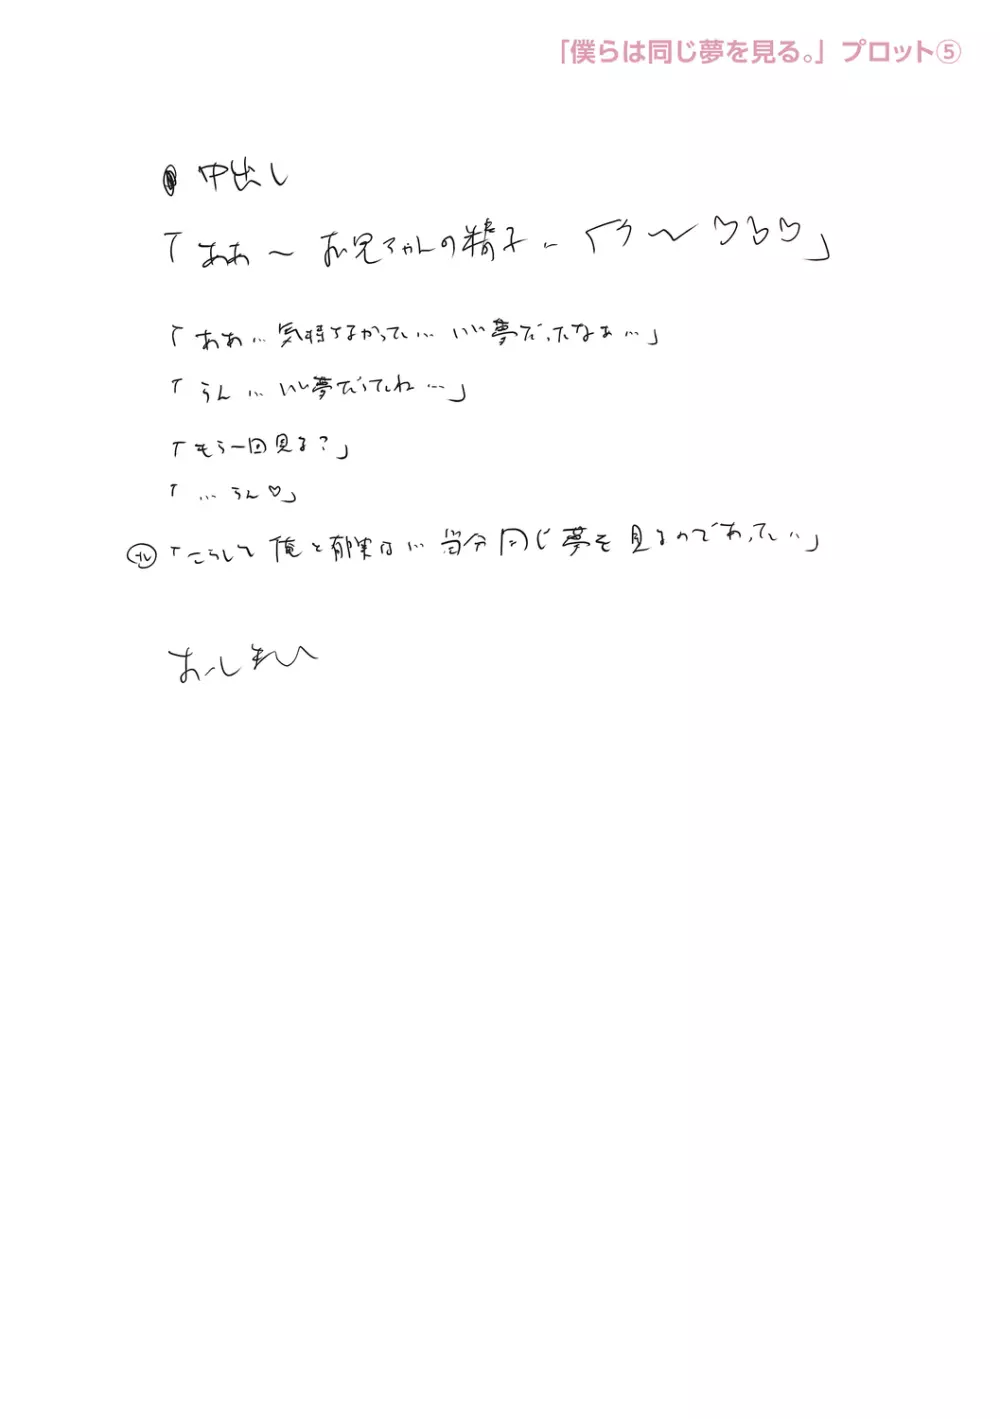 「僕らは同じ夢を見る。」プロット⑤
中出し
「ああ～お兄ちゃんの精子… くう～♡♡♡」
「ああ…気持よかった… いい夢だったなぁ…」
「うん… いい夢だったね…」
「もう一回見る?」
「…うん♡」
ナレ「こうして俺と郁実は… 当分同じ夢を見るのであった…」
おしまい